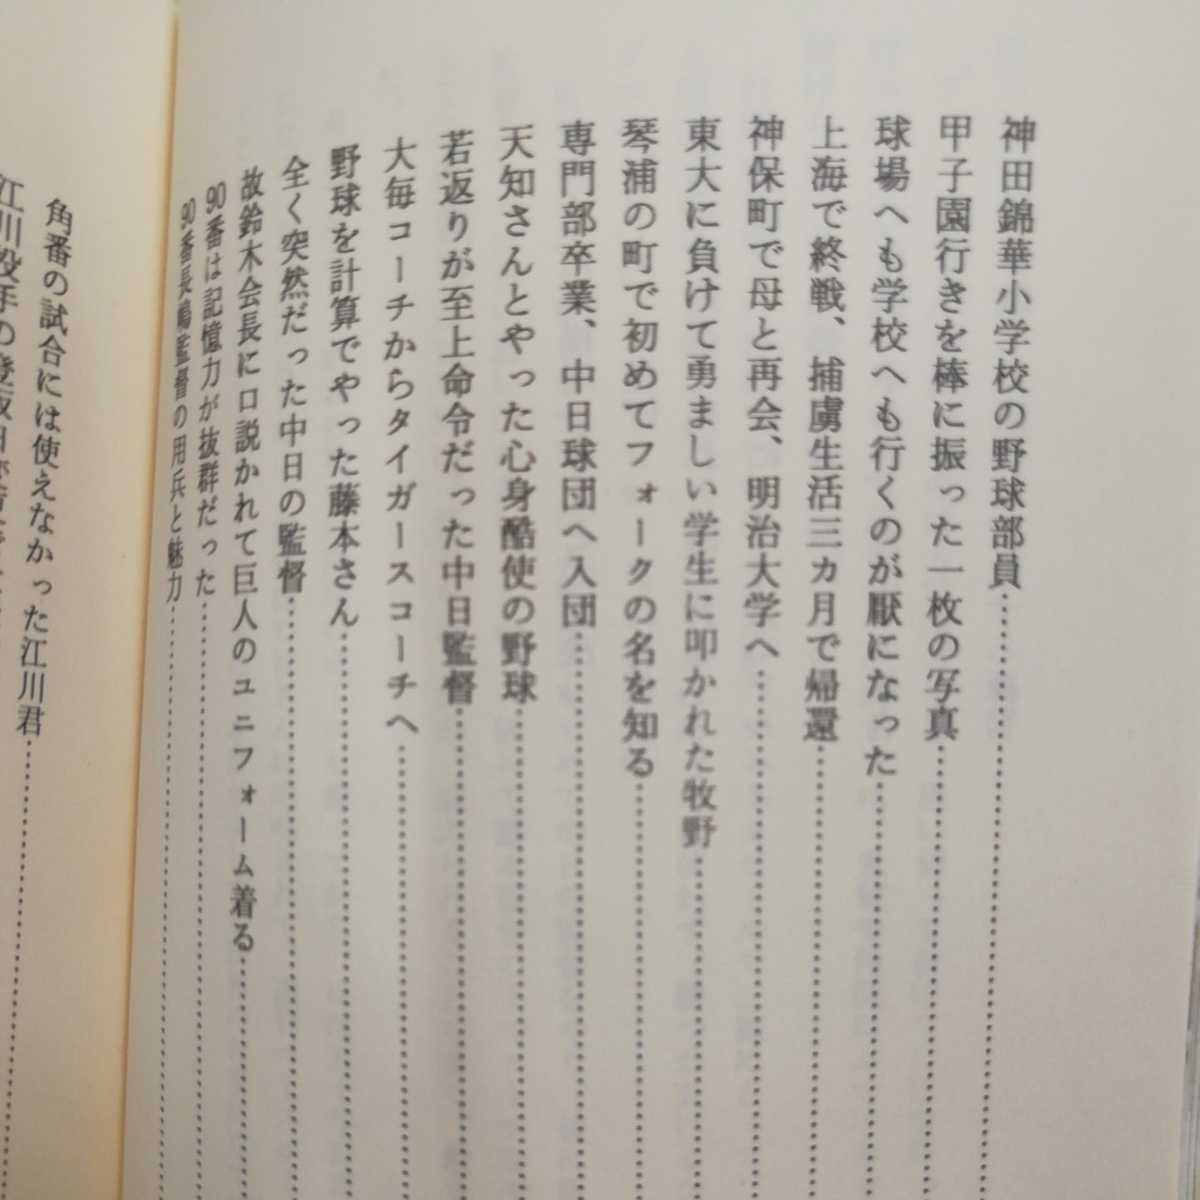 神田錦華小学校の野球部員
甲子園行きを棒に振った一枚の写真
球場へも学校へも行くのが厭になった
上海で終戦、捕虜生活三カ月で帰還
神保町で母と再会、明治大学へ
東大に負けて勇ましい学生に叩かれた牧野
琴浦の町で初めてフォークの名を知る
専門部卒業、中日球団へ入団
天知さんとやった心身酷使の野球
若返りが至上命令だった中日監督
大毎コーチからタイガースコーチへ
野球を計算でやった藤本さん
全く突然だった中日の監督
故鈴木会長に口説かれて巨人のユニフォーム着る
90番は記憶力が抜群だった
90番長嶋監督の用兵と魅力
角番の試合には使えなかった江川君
江川投手の登板日